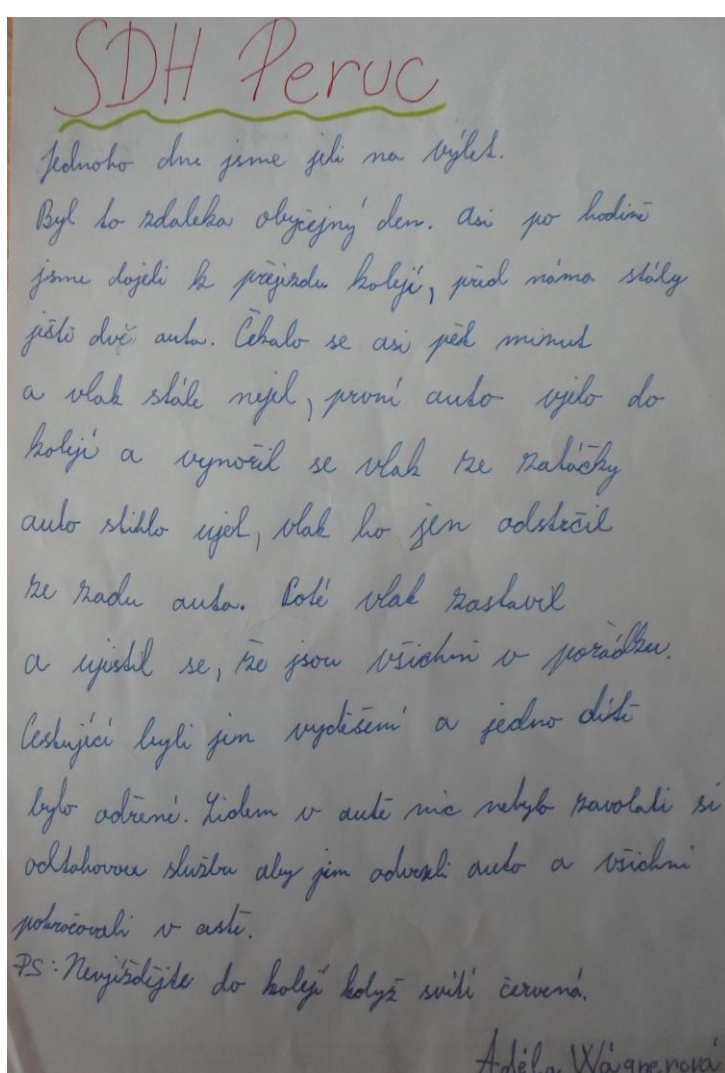 SDH Peruc
Jednoho dne jsme jeli na výlet.
Byl to zdaleka obyčejný den. Asi po hodině
jsme dojeli k přejezdu kolejí, před náma stály
ještě dvě auta. Čekalo se asi pět minut
a vlak stále nejel, první auto vjelo do
kolejí a vynořil se vlak ze zatáčky
auto stihlo ujet, vlak ho jen odstrčil
ze zadu auta. Poté vlak zastavil
a ujistil se, že jsou všichni v pořádku.
Cestující byli jen vyděšení a jedno dítě
bylo odřené. Lidem v autě nic nebylo zavolali si
odtahovou službu aby jim odvezli auto a všichni
pokračovali v cestě.
PS: Nevjíždějte do kolejí když svítí červená.
Adéla Wágnerová